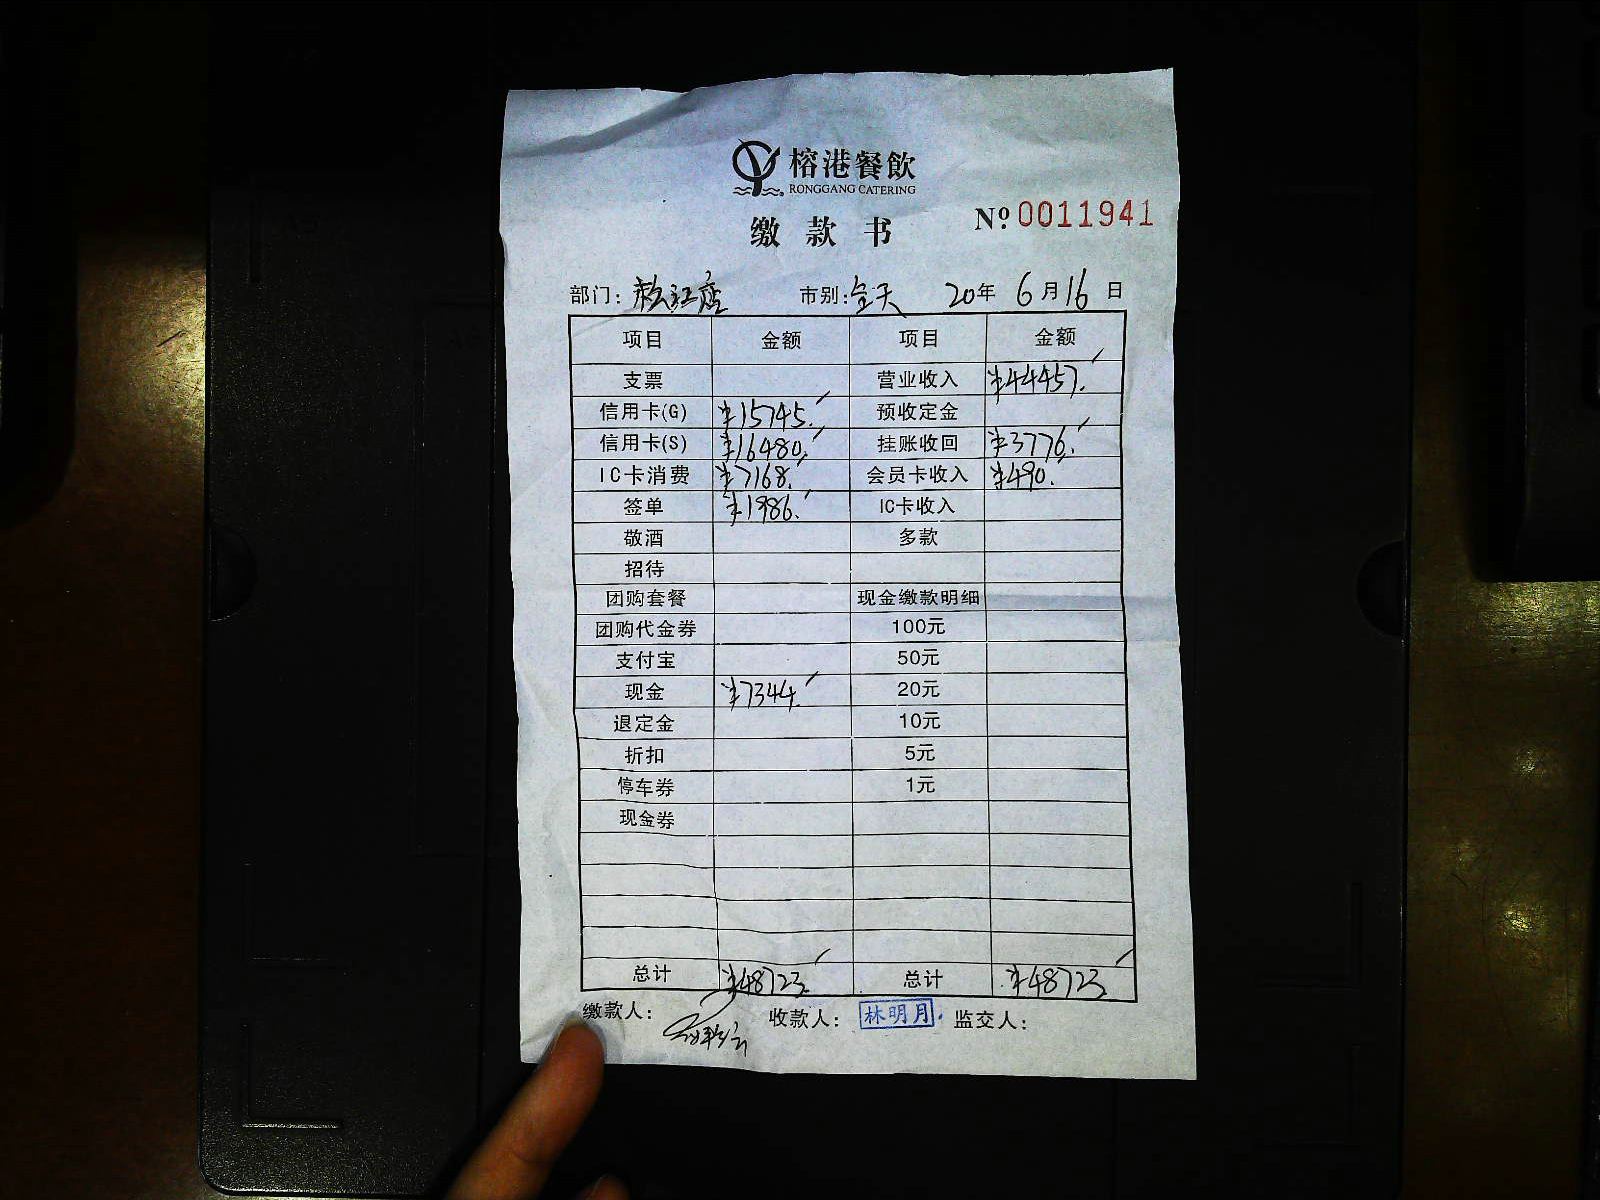 榕港餐飲
RONGGANG CATERING
缴款书 №0011941
部门：松江店 市别：全天 20年6月16日
项目 金额 项目 金额
支票 营业收入 ¥44457.
信用卡(G) ¥15745. 预收定金
信用卡(S) ¥16480. 挂账收回 ¥3776.
IC卡消费 ¥7168. 会员卡收入 ¥490.
签单 ¥1986. IC卡收入
敬酒 多款
招待
团购套餐 现金缴款明细
团购代金券 100元
支付宝 50元
现金 ¥7344. 20元
退定金 10元
折扣 5元
停车券 1元
现金券
总计 ¥48723. 总计 ¥48723
缴款人： 收款人：林明月. 监交人：